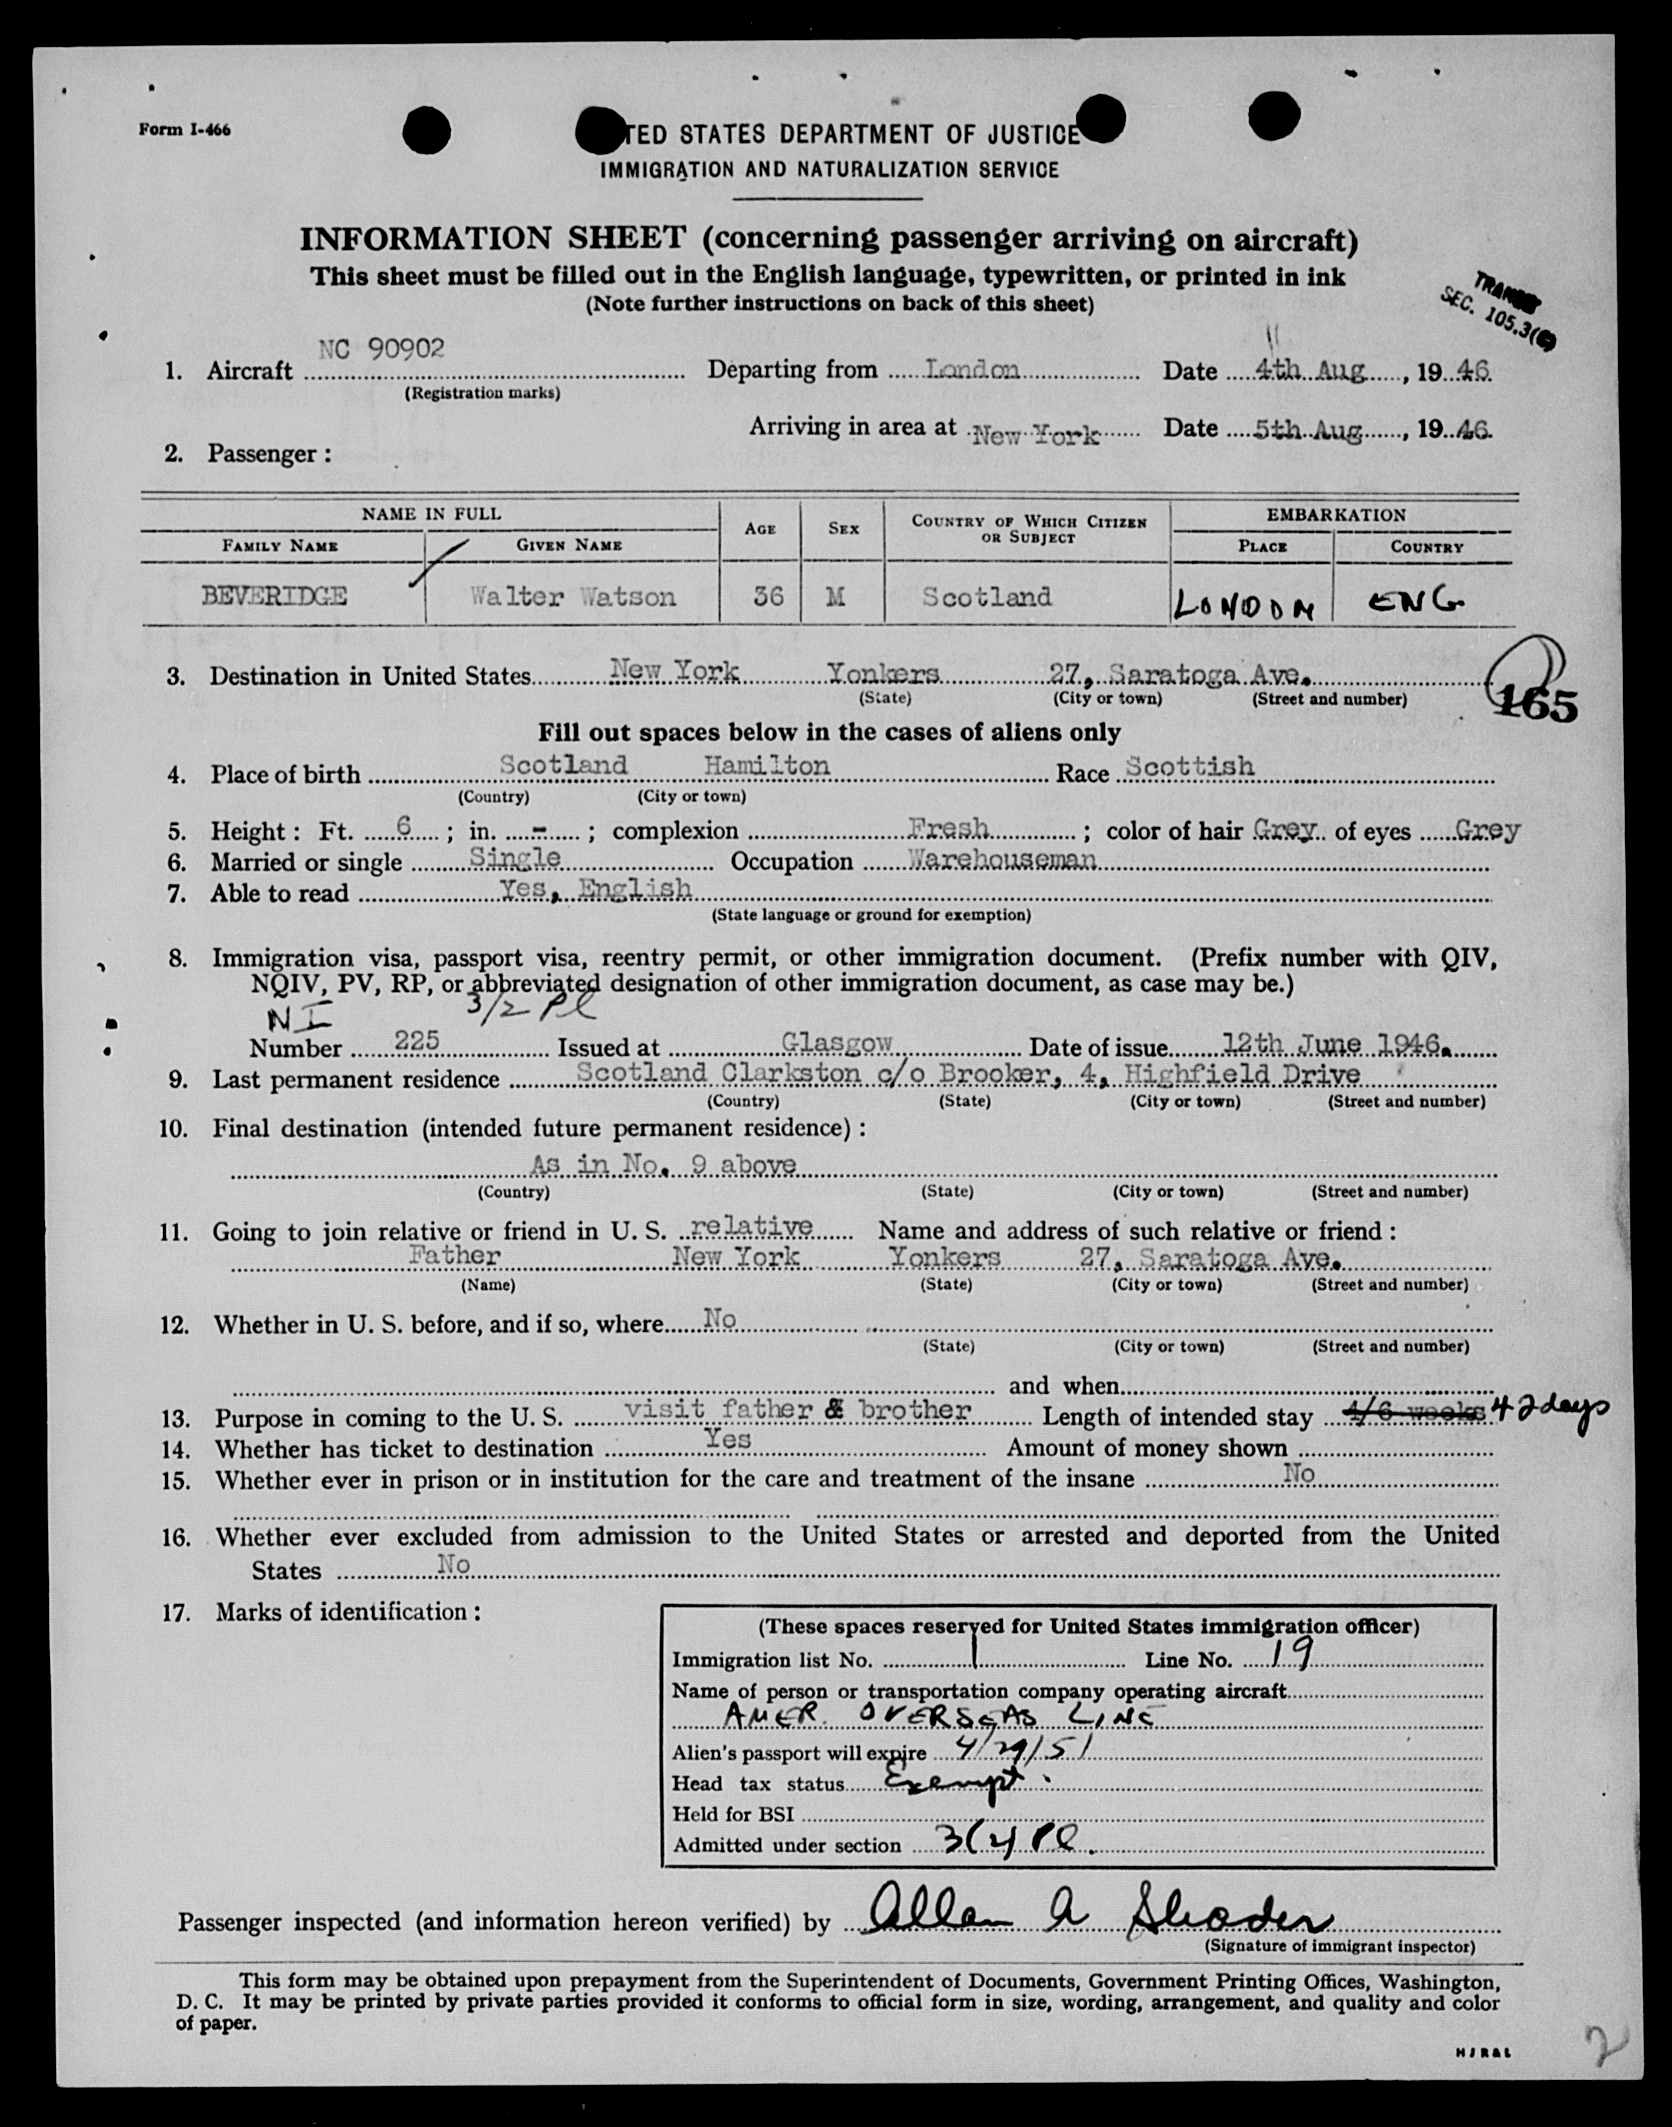 Form I-466
TED STATES DEPARTMENT OF JUSTICE
IMMIGRATION AND NATURALIZATION SERVICE
INFORMATION SHEET (concerning passenger arriving on aircraft)
This sheet must be filled out in the English language, typewritten, or printed in ink
(Note further instructions on back of this sheet)
SEC. 105.3
1. Aircraft NC 90902 Departing from London Date 4th Aug, 1946.
(Registration marks)
Arriving in area at New York Date 5th Aug, 1946.
2. Passenger :
NAME IN FULL AGE SEX COUNTRY OF WHICH CITIZEN OR SUBJECT EMBARKATION
FAMILY NAME GIVEN NAME PLACE COUNTRY
BEVERIDGE Walter Watson 36 M Scotland LONDON ENG
3. Destination in United States New York Yonkers 27, Saratoga Ave.
(State) (City or town) (Street and number)
165
Fill out spaces below in the cases of aliens only
4. Place of birth Scotland Hamilton Race Scottish
(Country) (City or town)
5. Height : Ft. 6 ; in. - ; complexion Fresh ; color of hair Grey of eyes Grey
6. Married or single Single Occupation Warehouseman
7. Able to read Yes, English
(State language or ground for exemption)
8. Immigration visa, passport visa, reentry permit, or other immigration document. (Prefix number with QIV,
NQIV, PV, RP, or abbreviated designation of other immigration document, as case may be.)
NI 3/2 Pl
Number 225 Issued at Glasgow Date of issue 12th June 1946.
9. Last permanent residence Scotland Clarkston c/o Brooker, 4, Highfield Drive
(Country) (State) (City or town) (Street and number)
10. Final destination (intended future permanent residence) :
As in No. 9 above
(Country) (State) (City or town) (Street and number)
11. Going to join relative or friend in U. S. relative Name and address of such relative or friend :
Father New York Yonkers 27, Saratoga Ave.
(Name) (State) (City or town) (Street and number)
12. Whether in U. S. before, and if so, where No
(State) (City or town) (Street and number)
and when
13. Purpose in coming to the U. S. visit father & brother Length of intended stay 4/6 weeks 42 days
14. Whether has ticket to destination Yes Amount of money shown
15. Whether ever in prison or in institution for the care and treatment of the insane No
16. Whether ever excluded from admission to the United States or arrested and deported from the United
States No
17. Marks of identification :
(These spaces reserved for United States immigration officer)
Immigration list No. 1 Line No. 19
Name of person or transportation company operating aircraft
AMER. OVERSEAS LINE
Alien's passport will expire 4/29/51
Head tax status Exempt.
Held for BSI
Admitted under section 3(2) Pl.
Passenger inspected (and information hereon verified) by Allan A
(Signature of immigrant inspector)
This form may be obtained upon prepayment from the Superintendent of Documents, Government Printing Offices, Washington,
D. C. It may be printed by private parties provided it conforms to official form in size, wording, arrangement, and quality and color
of paper.
2